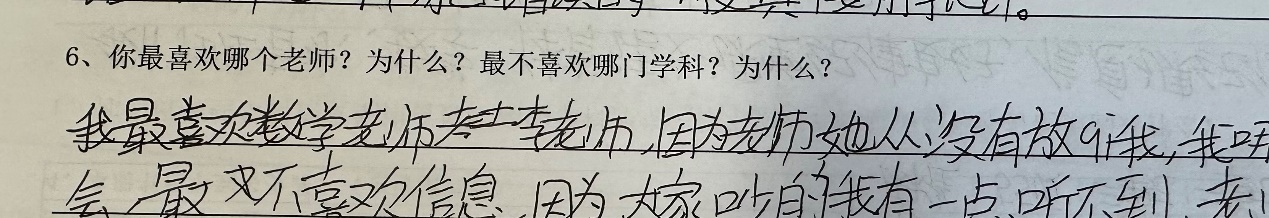 6、你最喜欢哪个老师？为什么？最不喜欢哪门学科？为什么？
我最喜欢数学老师李老师,因为老师她从没有放qi我,我
会,最不喜欢信息,因为大家吵的我有一点听不到 老